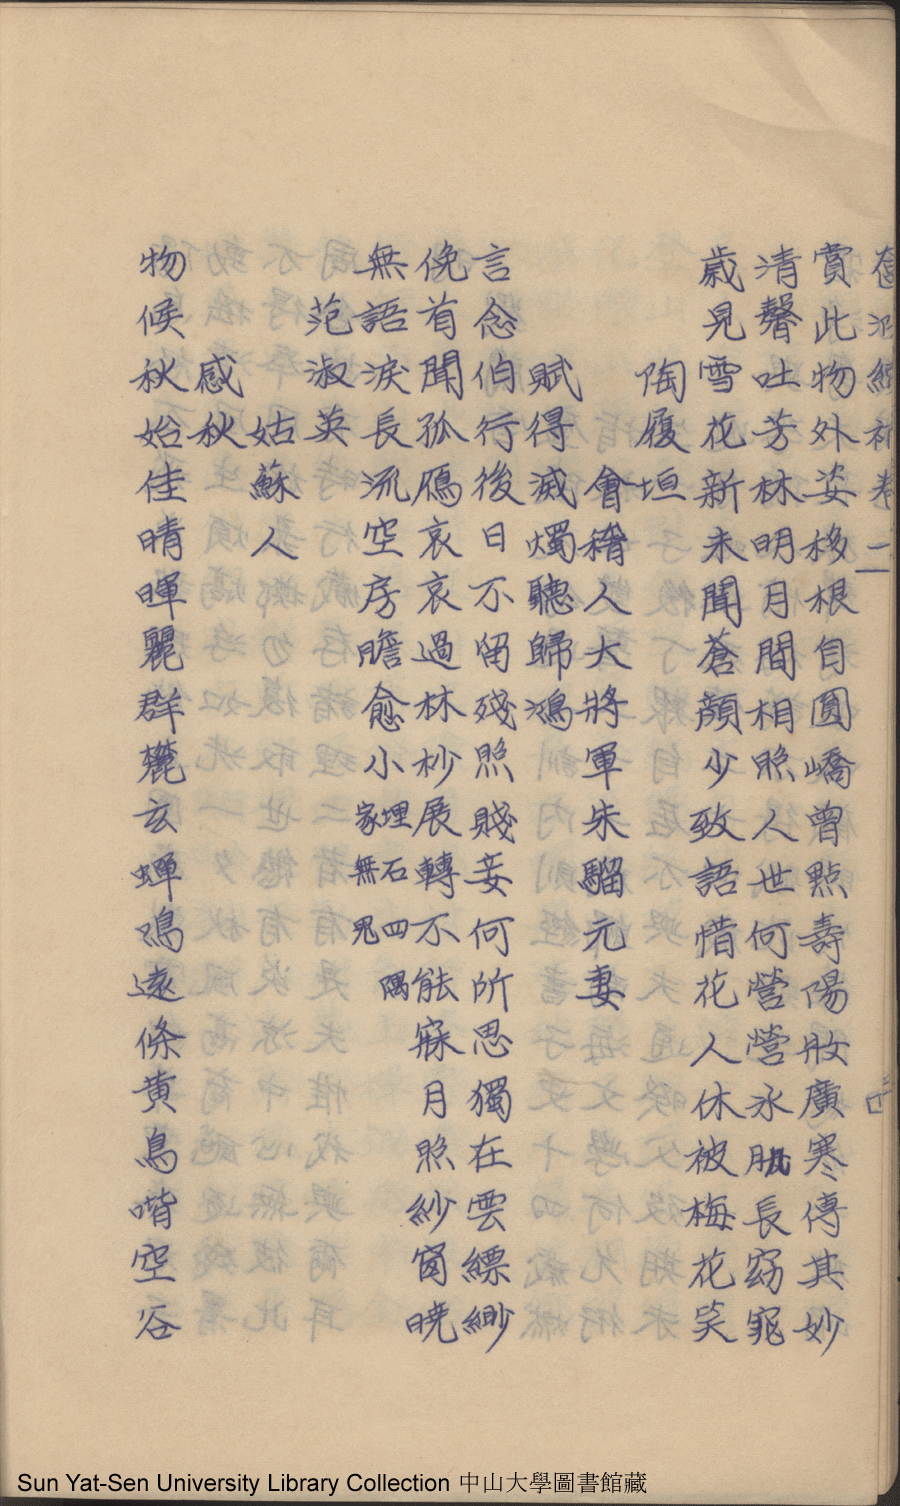 賞此物外姿移根自圓嶠曾點壽陽妝廣寒傳其妙
清馨吐芳林明月間相照人世何營營永肌長窈窕
歲見雪花新未聞蒼顏少致語惜花人休被梅花笑
陶履垣
會稽人大將軍朱騮元妻
賦得滅燭聽歸鴻
言念伯行後日不留殘照賤妾何所思獨在雲縹緲
俛首聞孤鴈哀哀過林杪展轉不能寐月照紗窗曉
無語淚長流空房膽愈小埋石四隅家無鬼
范淑英
姑蘇人
感秋
物候秋始佳晴暉麗群麓玄蟬鳴遠條黃鳥喈空谷
Sun Yat-Sen University Library Collection 中山大學圖書館藏